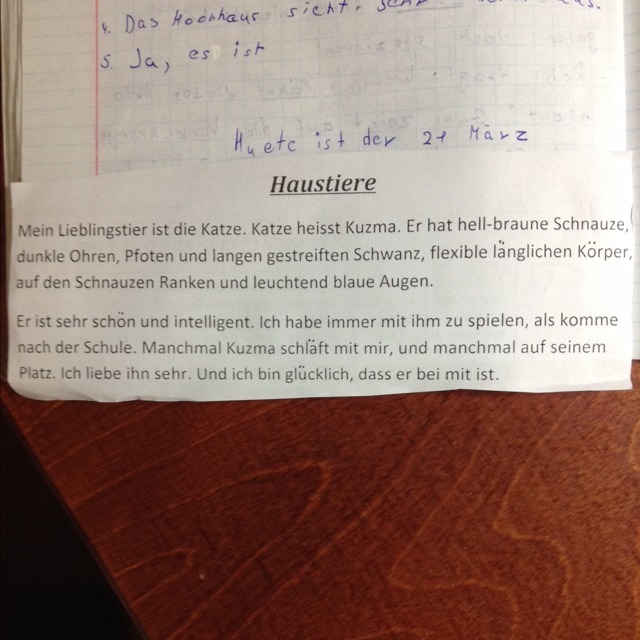 4. Das Hochhaus sieht
5. Ja, es ist
Huete ist der 21 März
Haustiere
Mein Lieblingstier ist die Katze. Katze heisst Kuzma. Er hat hell-braune Schnauze,
dunkle Ohren, Pfoten und langen gestreiften Schwanz, flexible länglichen Körper,
auf den Schnauzen Ranken und leuchtend blaue Augen.
Er ist sehr schön und intelligent. Ich habe immer mit ihm zu spielen, als komme
nach der Schule. Manchmal Kuzma schläft mit mir, und manchmal auf seinem
Platz. Ich liebe ihn sehr. Und ich bin glücklich, dass er bei mit ist.